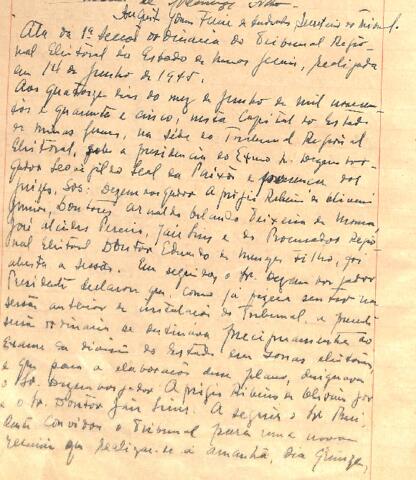 Augusto Secretario do Tribunal.
Ata da 1ª sessão ordinaria do Tribunal Regio-
nal Eleitoral do Estado de Minas Gerais, realizada
em 14 de Junho de 1945.
Aos quatorze dias do mez de Junho de mil novecen-
tos e quarenta e cinco, nesta Capital do Estado
de Minas Geraes, na séde do Tribunal Regional
Eleitoral, sob a presidencia do Exmo Sr. Desembar-
gador Leovigildo Leal da Paixão e presença dos
juizes, Srs: Desembargador Aprigio Ribeiro de Oliveira
Junior, Doutores Arnaldo Orlando Teixeira de Moura,
José Alcides Pereira, Jair Lins e do Procurador Regio-
nal Eleitoral Doutor Eduardo de Menezes Filho, foi
aberta a sessão. Em seguida, o Sr. Desembargador
Presidente declarou que, como já na
sessão anterior de instalação do Tribunal, a presente
sessão ordinaria se destinava precipuamente ao
exame da divisão do Estado em zonas eleitoraes,
e que para a elaboração desse plano, designava
o Sr. Desembargador Aprigio Ribeiro de Oliveira Jor
e o Sr. Doutor Jair Lins. A seguir o Sr. Presi-
dente convidou o Tribunal para uma nova
reunião que realizar-se á amanhã, dia quinze,